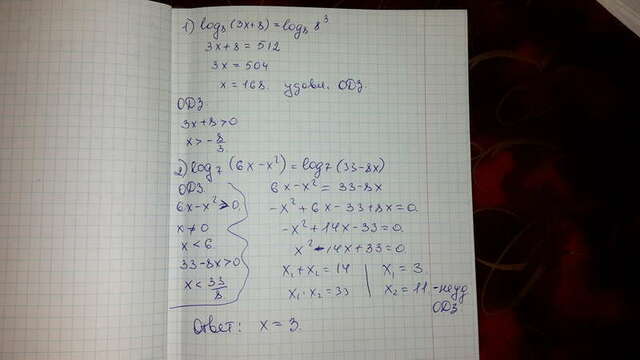 1) log₈(3x+8) = log₈ 8³
3x+8 = 512
3x = 504
x = 168. удовл. ОДЗ.
ОДЗ.
3x+8>0
x > -8/3.
2) log₇(6x-x²) = log₇(33-8x)
ОДЗ.
6x-x²>0
x≠0
x<6
33-8x>0
x < 33/8
6x-x² = 33-8x
-x²+6x-33+8x=0.
-x²+14x-33=0.
x²-14x+33=0.
x₁+x₂=14
x₁·x₂=33
x₁=3.
x₂=11 -неуд
ОДЗ
Ответ: x=3.